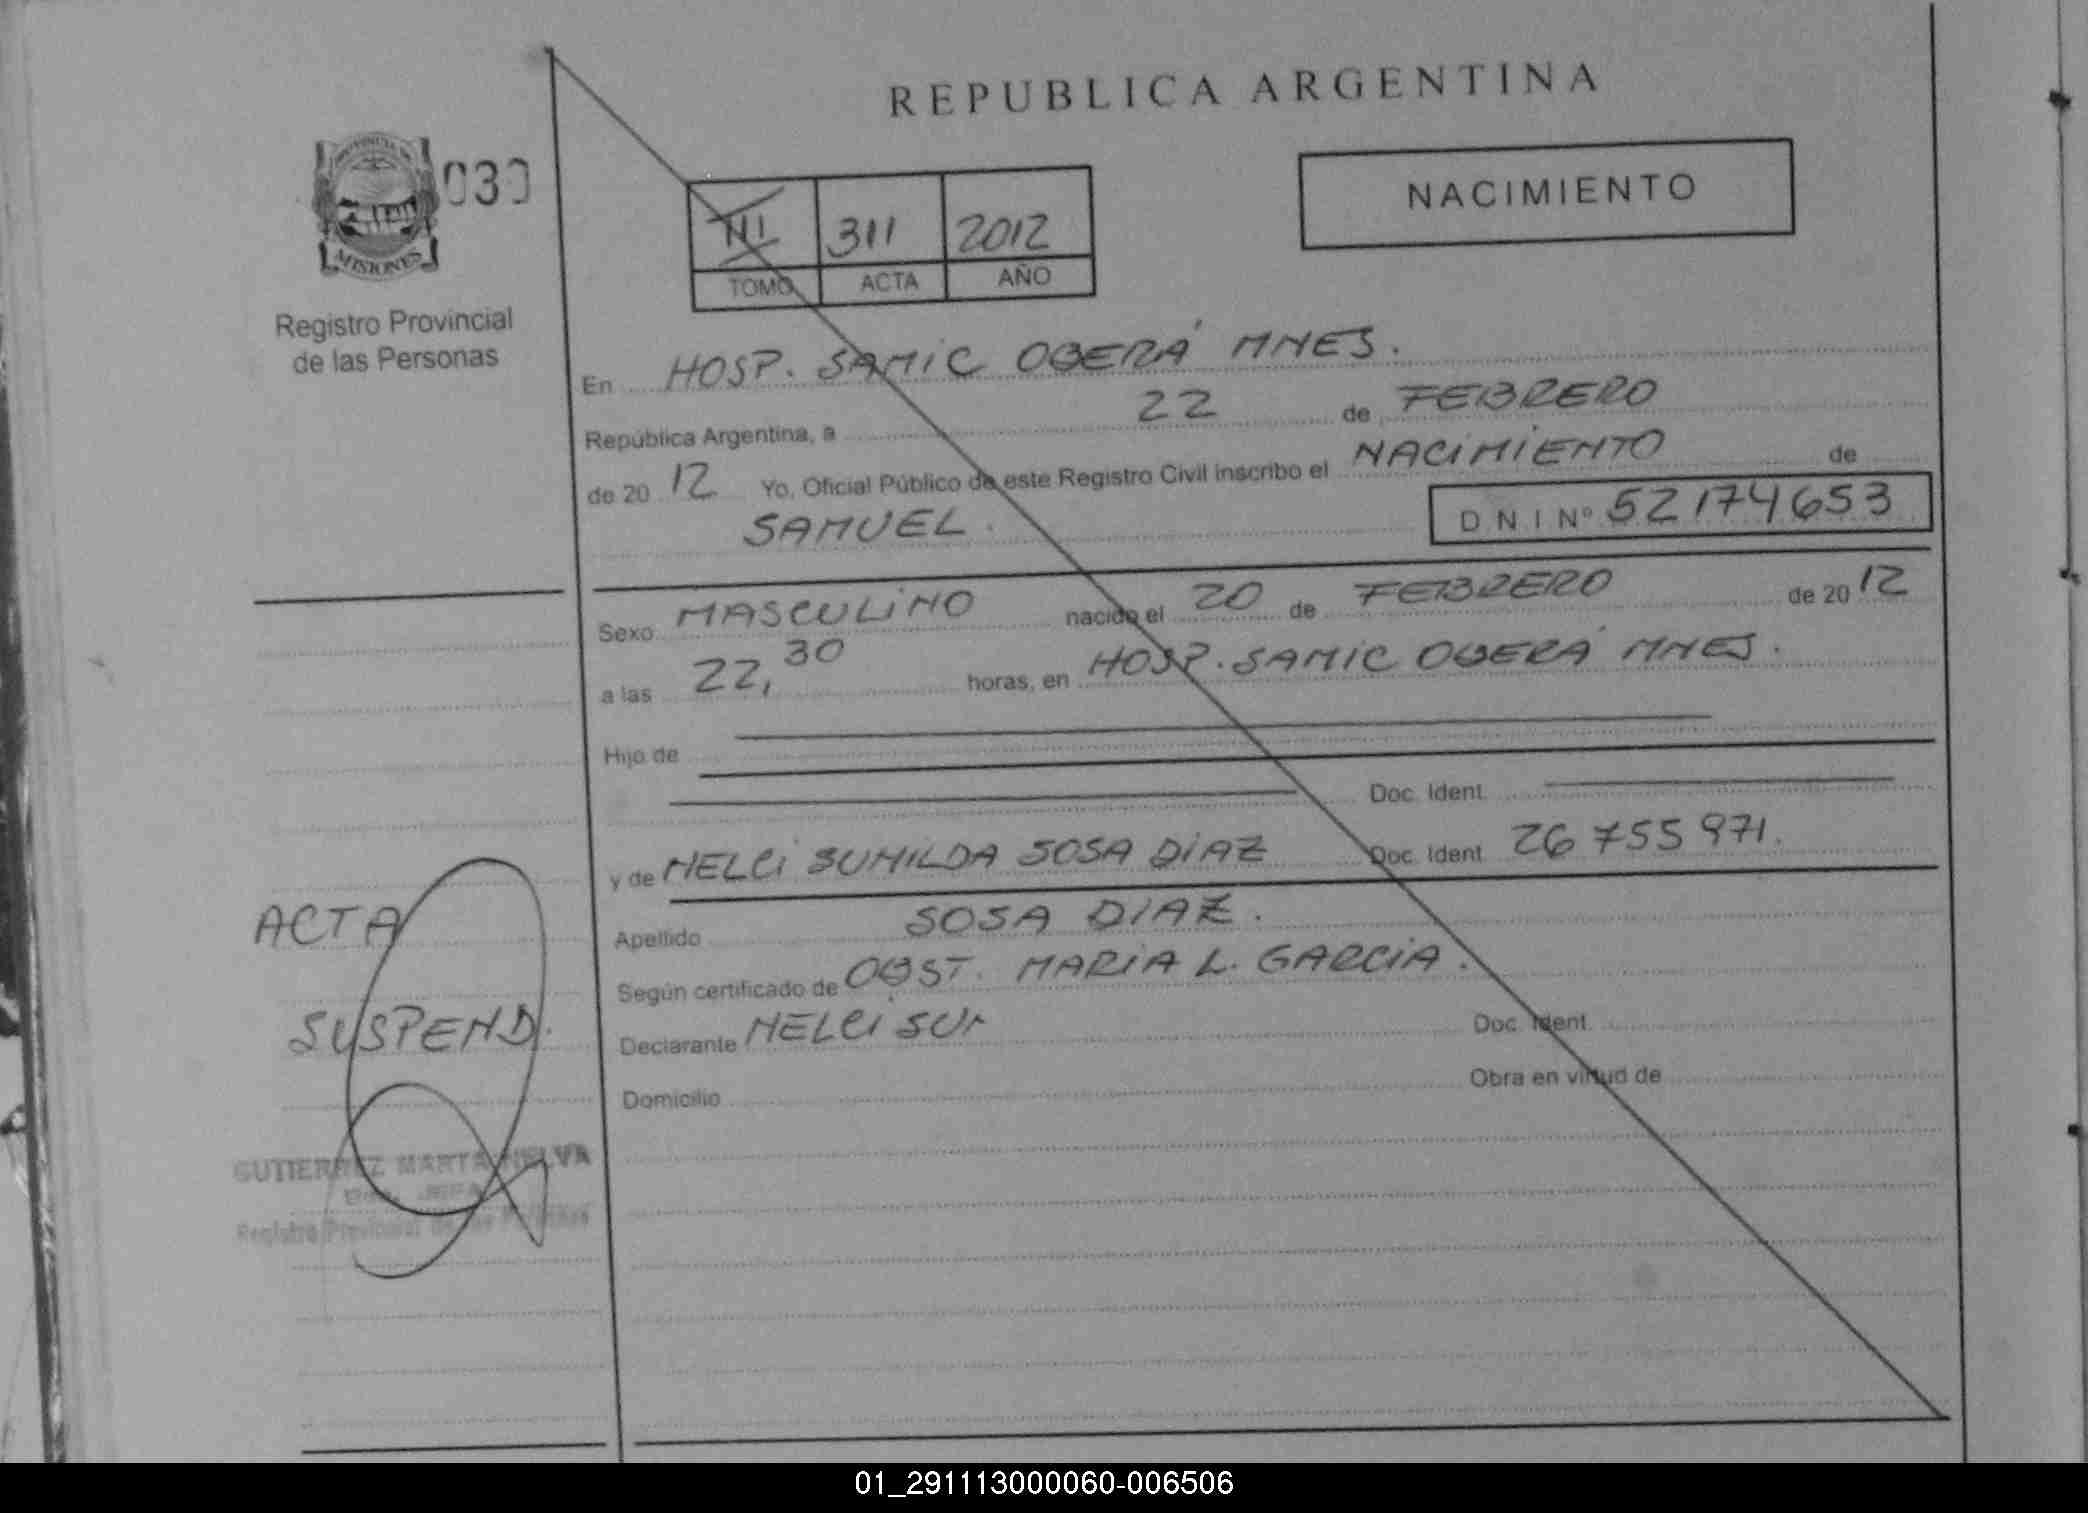 REPUBLICA ARGENTINA
PROVINCIA DE
MISIONES
030
Registro Provincial
de las Personas
III 311 2012
TOMO ACTA AÑO
NACIMIENTO
En HOSP. SAMIC OBERÁ MNES.
República Argentina, a 22 de FEBRERO
de 20 12 Yo, Oficial Público de este Registro Civil inscribo el NACIMIENTO de
SAMUEL.
D N I Nº 52174653
Sexo MASCULINO nacido el 20 de FEBRERO de 20 12
a las 22,30 horas, en HOSP. SAMIC OBERÁ MNES.
Hijo de
Doc. Ident.
y de NELCI SUNILDA SOSA DIAZ Doc. Ident. 26 755 971.
Apellido SOSA DIAZ.
Según certificado de OBST. MARIA L. GARCIA.
Declarante NELCI SUN Doc. Ident.
Domicilio Obra en virtud de
ACTA
SUSPEND.
GUTIERREZ MARTA NELVA
Registro Provincial de las Personas
01_291113000060-006506